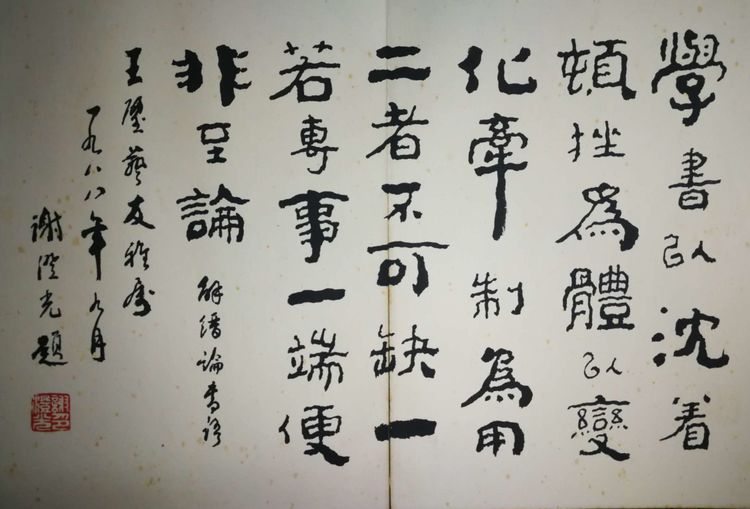 學書㠯沈着
頓挫為體㠯變
化牽制為用
二者不可缺一
若專事一端便
非至論
解縉論書語
王壁藝友雅屬
一九八八年九月
謝澄光題
謝澄光